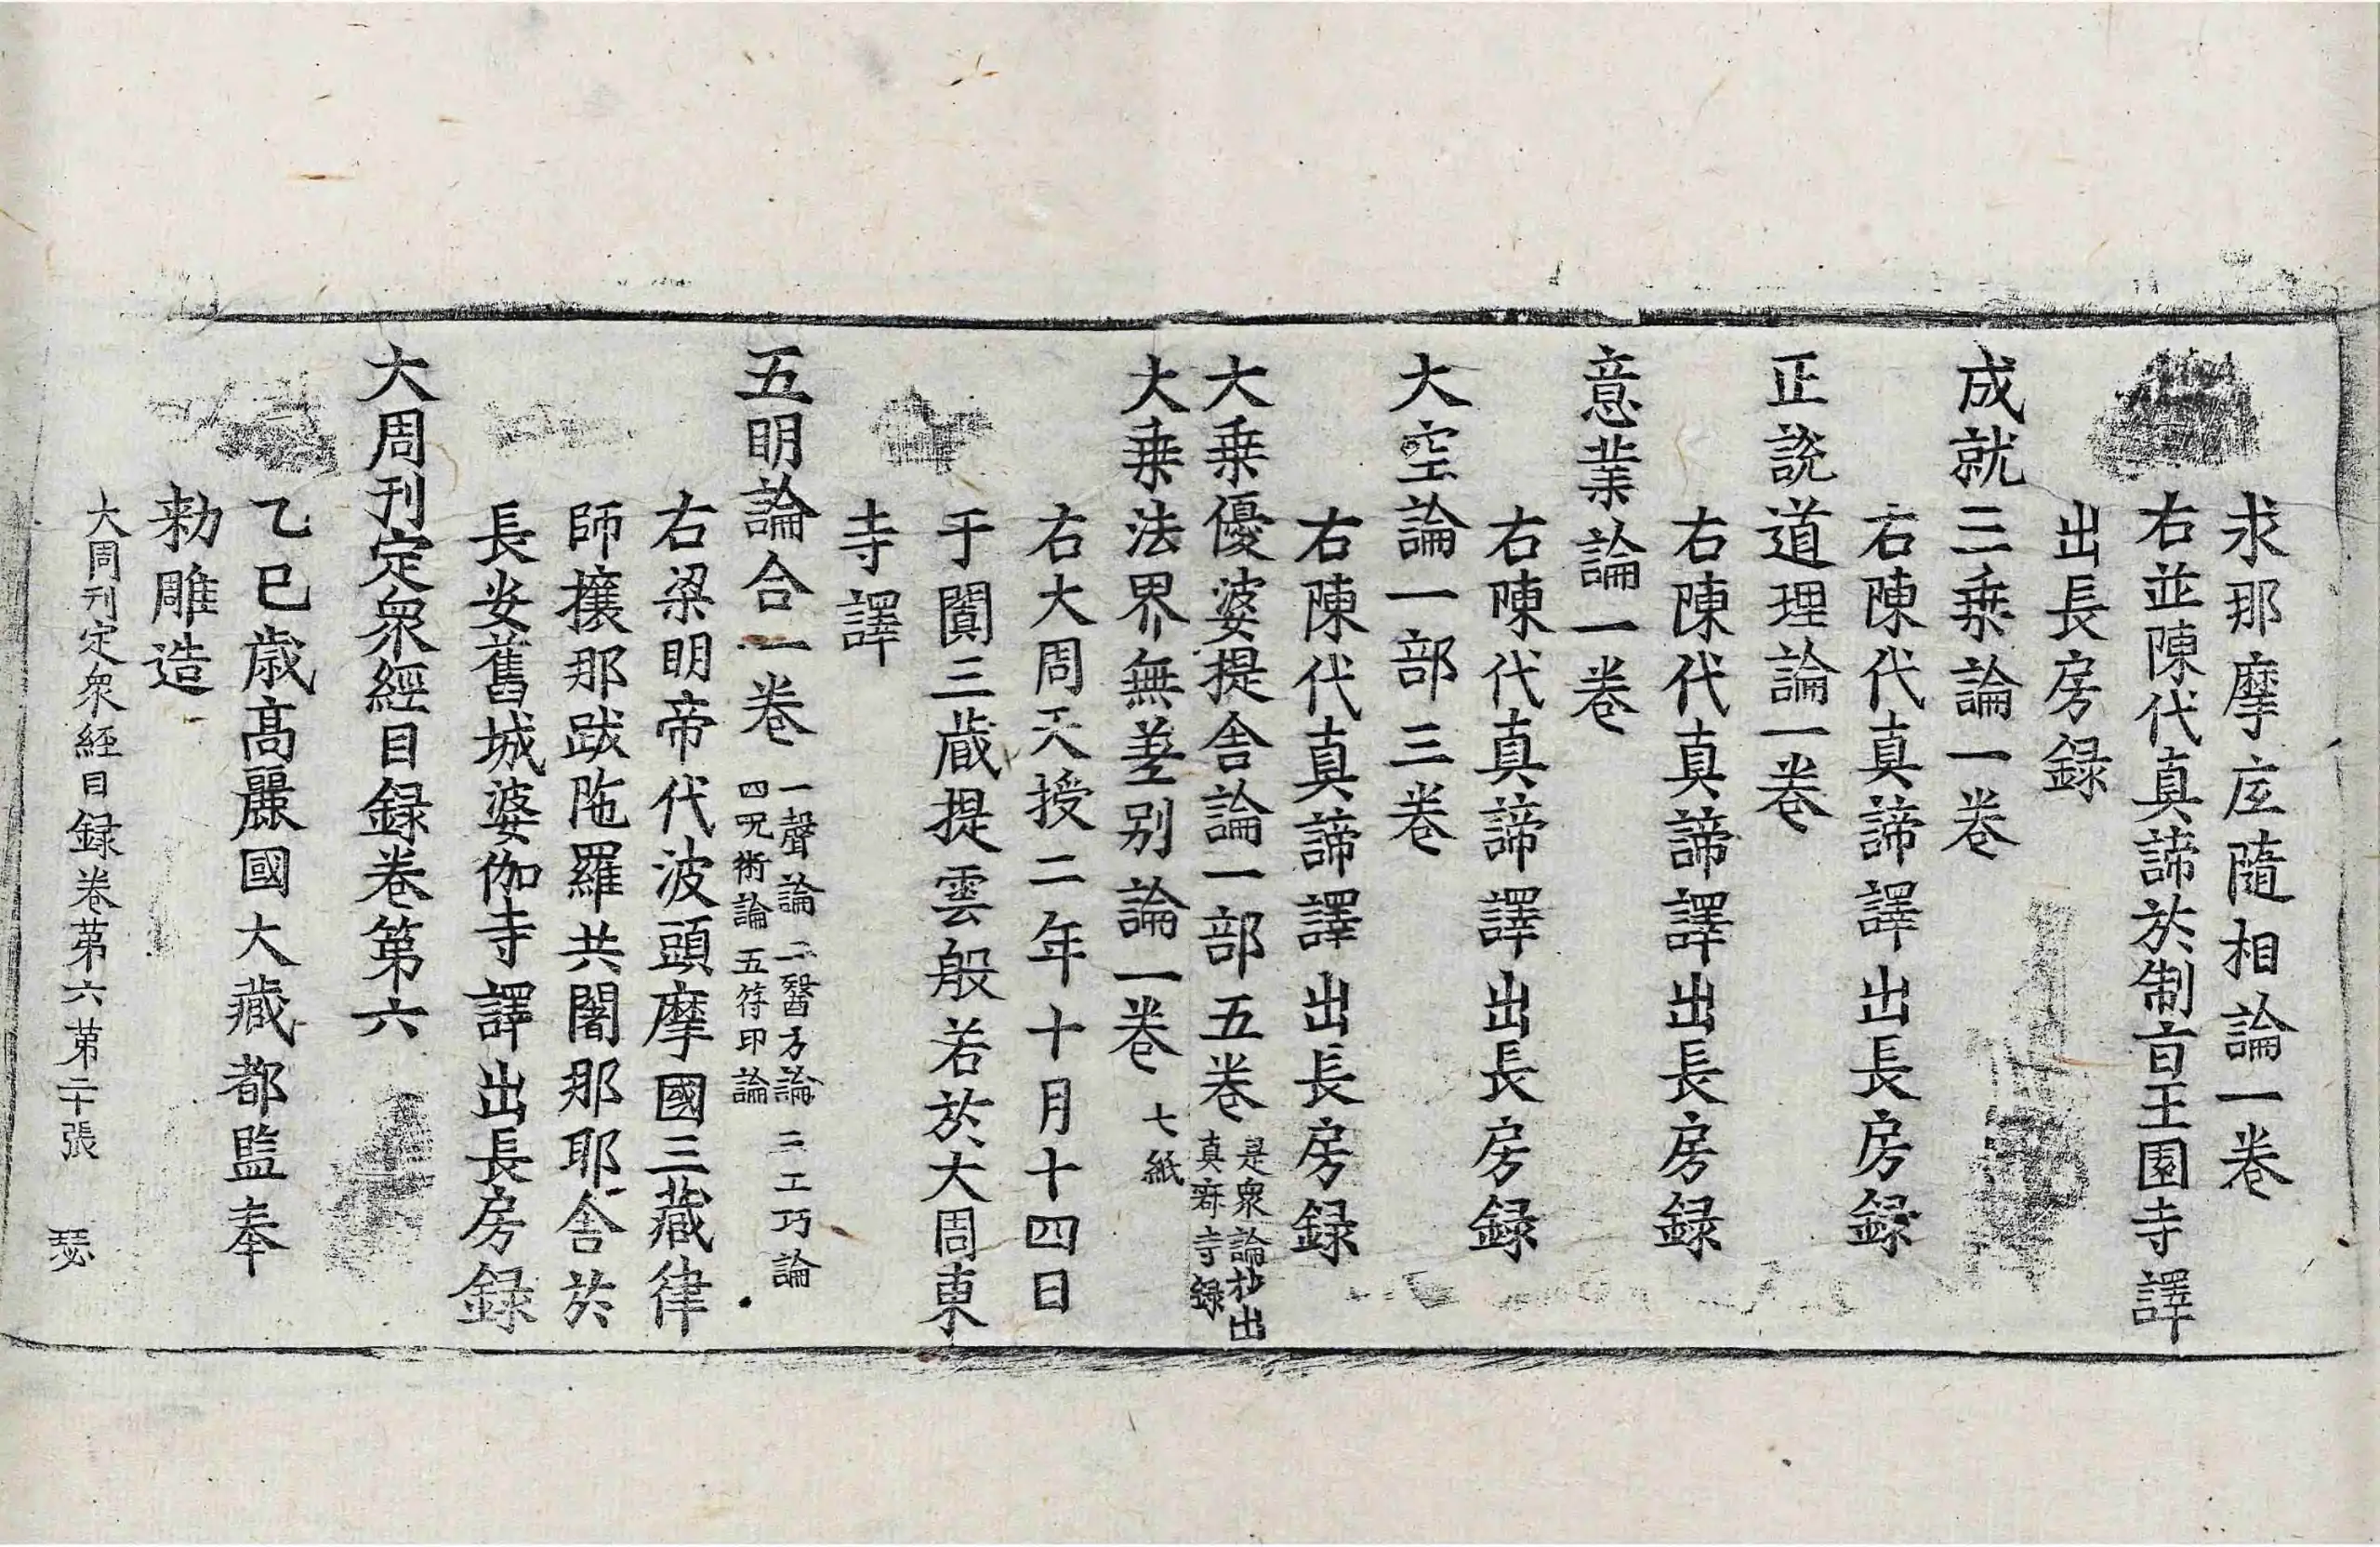 求那摩底隨相論一卷
右並陳代真諦於制旨王園寺譯
出長房録
成就三乗論一卷
右陳代真諦譯出長房録
正說道理論一卷
右陳代真諦譯出長房録
意業論一卷
右陳代真諦譯出長房録
大空論一部三卷
右陳代真諦譯出長房録
大乗優婆提舍論一部五卷 是衆論抄出
真寂寺録
大乗法界無差别論一卷 七紙
右大周天授二年十月十四日
于闐三藏提雲般若於大周東
寺譯
五明論合一卷 一聲論 二醫方論 三工巧論
四呪術論 五符印論
右梁明帝代波頭摩國三藏律
師攘那跋陁羅共闍那耶舍於
長安舊城婆伽寺譯出長房録
大周刊定衆經目録卷第六
乙巳歳高麗國大藏都監奉
勑雕造
大周刊定衆經目録卷第六 第二十張 瑟